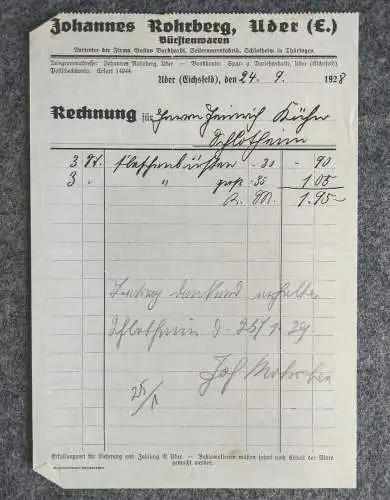 Johannes Rohrberg, Uder (E.)
Bürstenwaren
Vertreter der Firma Gustav Burkhardt, Seilerwarenfabrik, Schlotheim in Thüringen
Telegrammadresse: Johannes Rohrberg, Uder — Bankkonto: Spar- u. Darlehenskasse, Uder (Eichsfeld)
Postscheckkonto: Erfurt 14944
Uder (Eichsfeld), den 24. 9. 1928
Rechnung für Herrn Heinrich Kühn
Schlotheim
3 St. Flaschenbürsten - 30 - 90
3 " " groß - 35 1.05
R. M. 1.95
Betrag dankend erhalten
Schlotheim d. 25/1. 29
Joh Rohrberg
25/1
Erfüllungsort für Lieferung und Zahlung ist Uder. — Reklamationen müssen sofort nach Erhalt der Ware
gemacht werden.